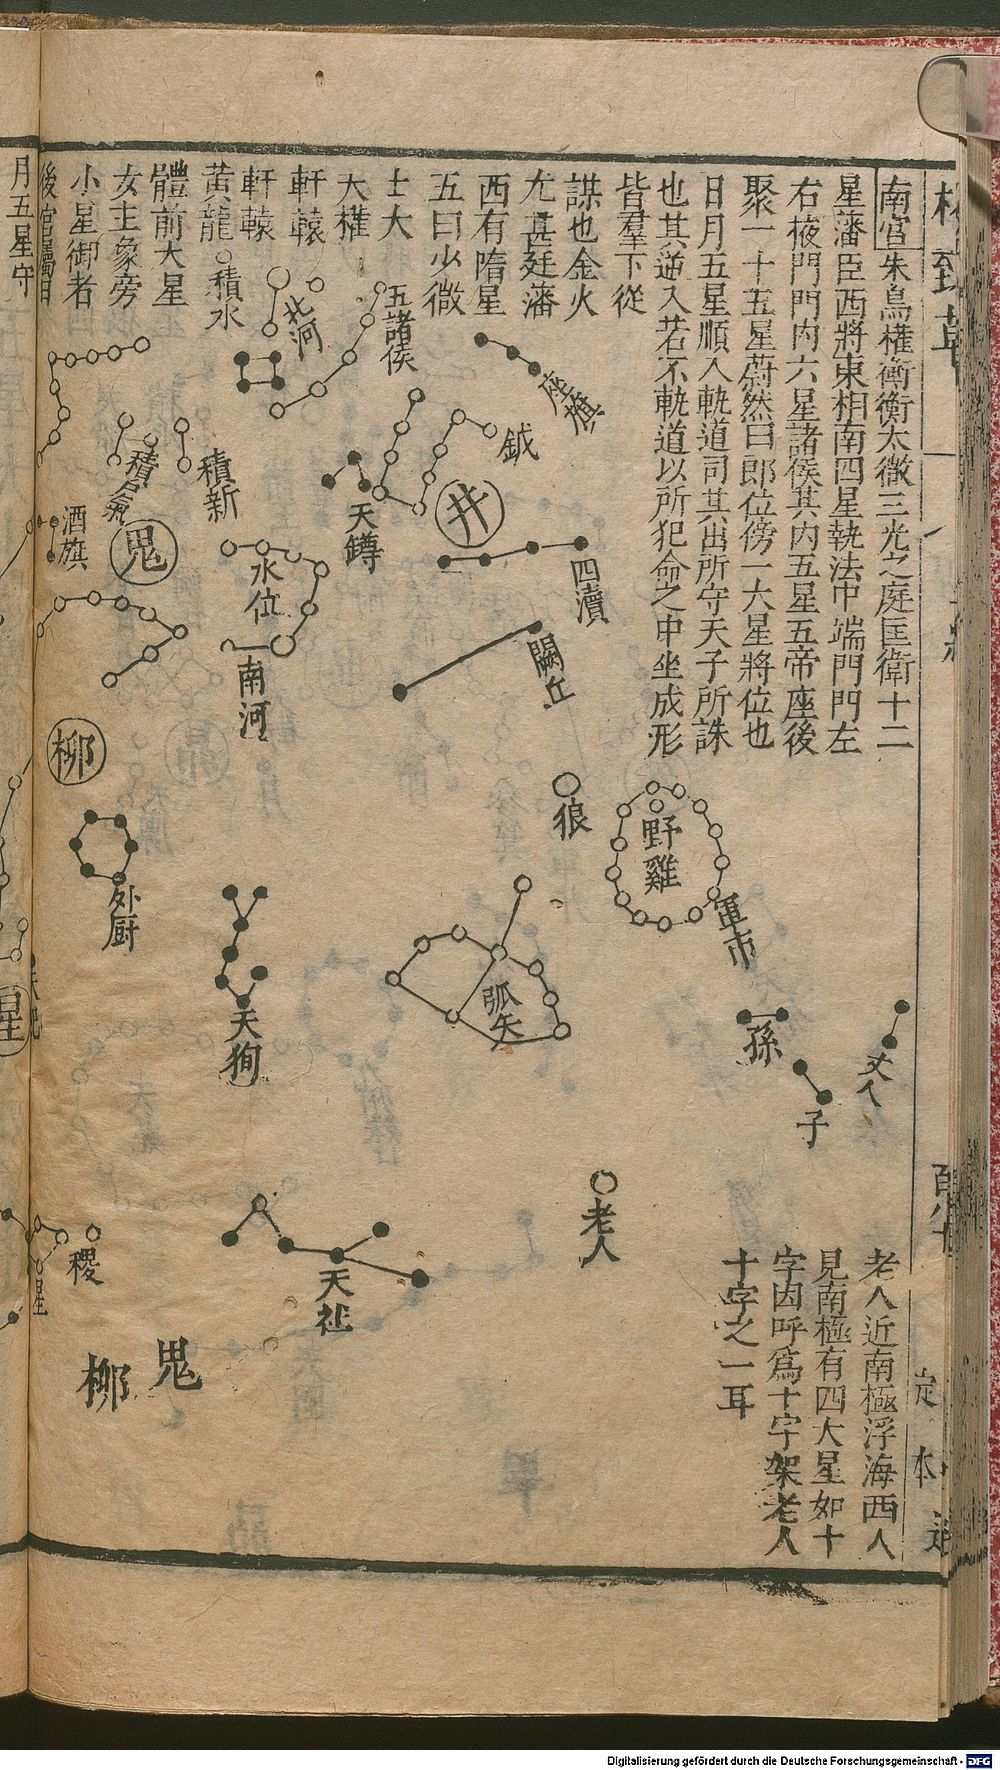 南宮朱鳥權衡衡太微三光之庭匡衛十二
星藩臣西將東相南四星執法中端門門左
右掖門門內六星諸侯其內五星五帝座後
聚一十五星蔚然曰郎位傍一大星將位也
日月五星順入軌道司其出所守天子所誅
也其逆入若不軌道以所犯命之中坐成形
皆羣下從
謀也金火
尤甚廷藩
西有隋星
五曰少微
士大
大權
軒轅
軒轅
黃龍
體前大星
女主象旁
小星御者
後宮屬
月五星守
積水
北河
五諸侯
座旗
鉞
井
天鐏
四瀆
闕丘
積薪
積尸氣
鬼
酒旗
水位
南河
柳
外厨
狼
野雞
軍市
弧矢
天狗
孫
子
丈人
老人
天社
稷
星
鬼
柳
老人近南極浮海西人
見南極有四大星如十
字因呼爲十字架老人
十字之一耳
Digitalisierung gefördert durch die Deutsche Forschungsgemeinschaft - DFG